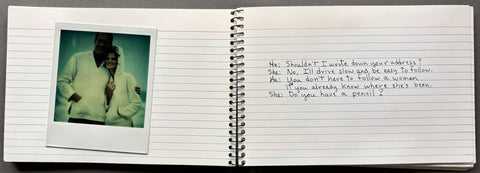 He: Shouldn't I write down your address?
She: No, I'll drive slow and be easy to follow.
He: You don't have to follow a woman
if you already know where she's been.
She: Do you have a pencil?